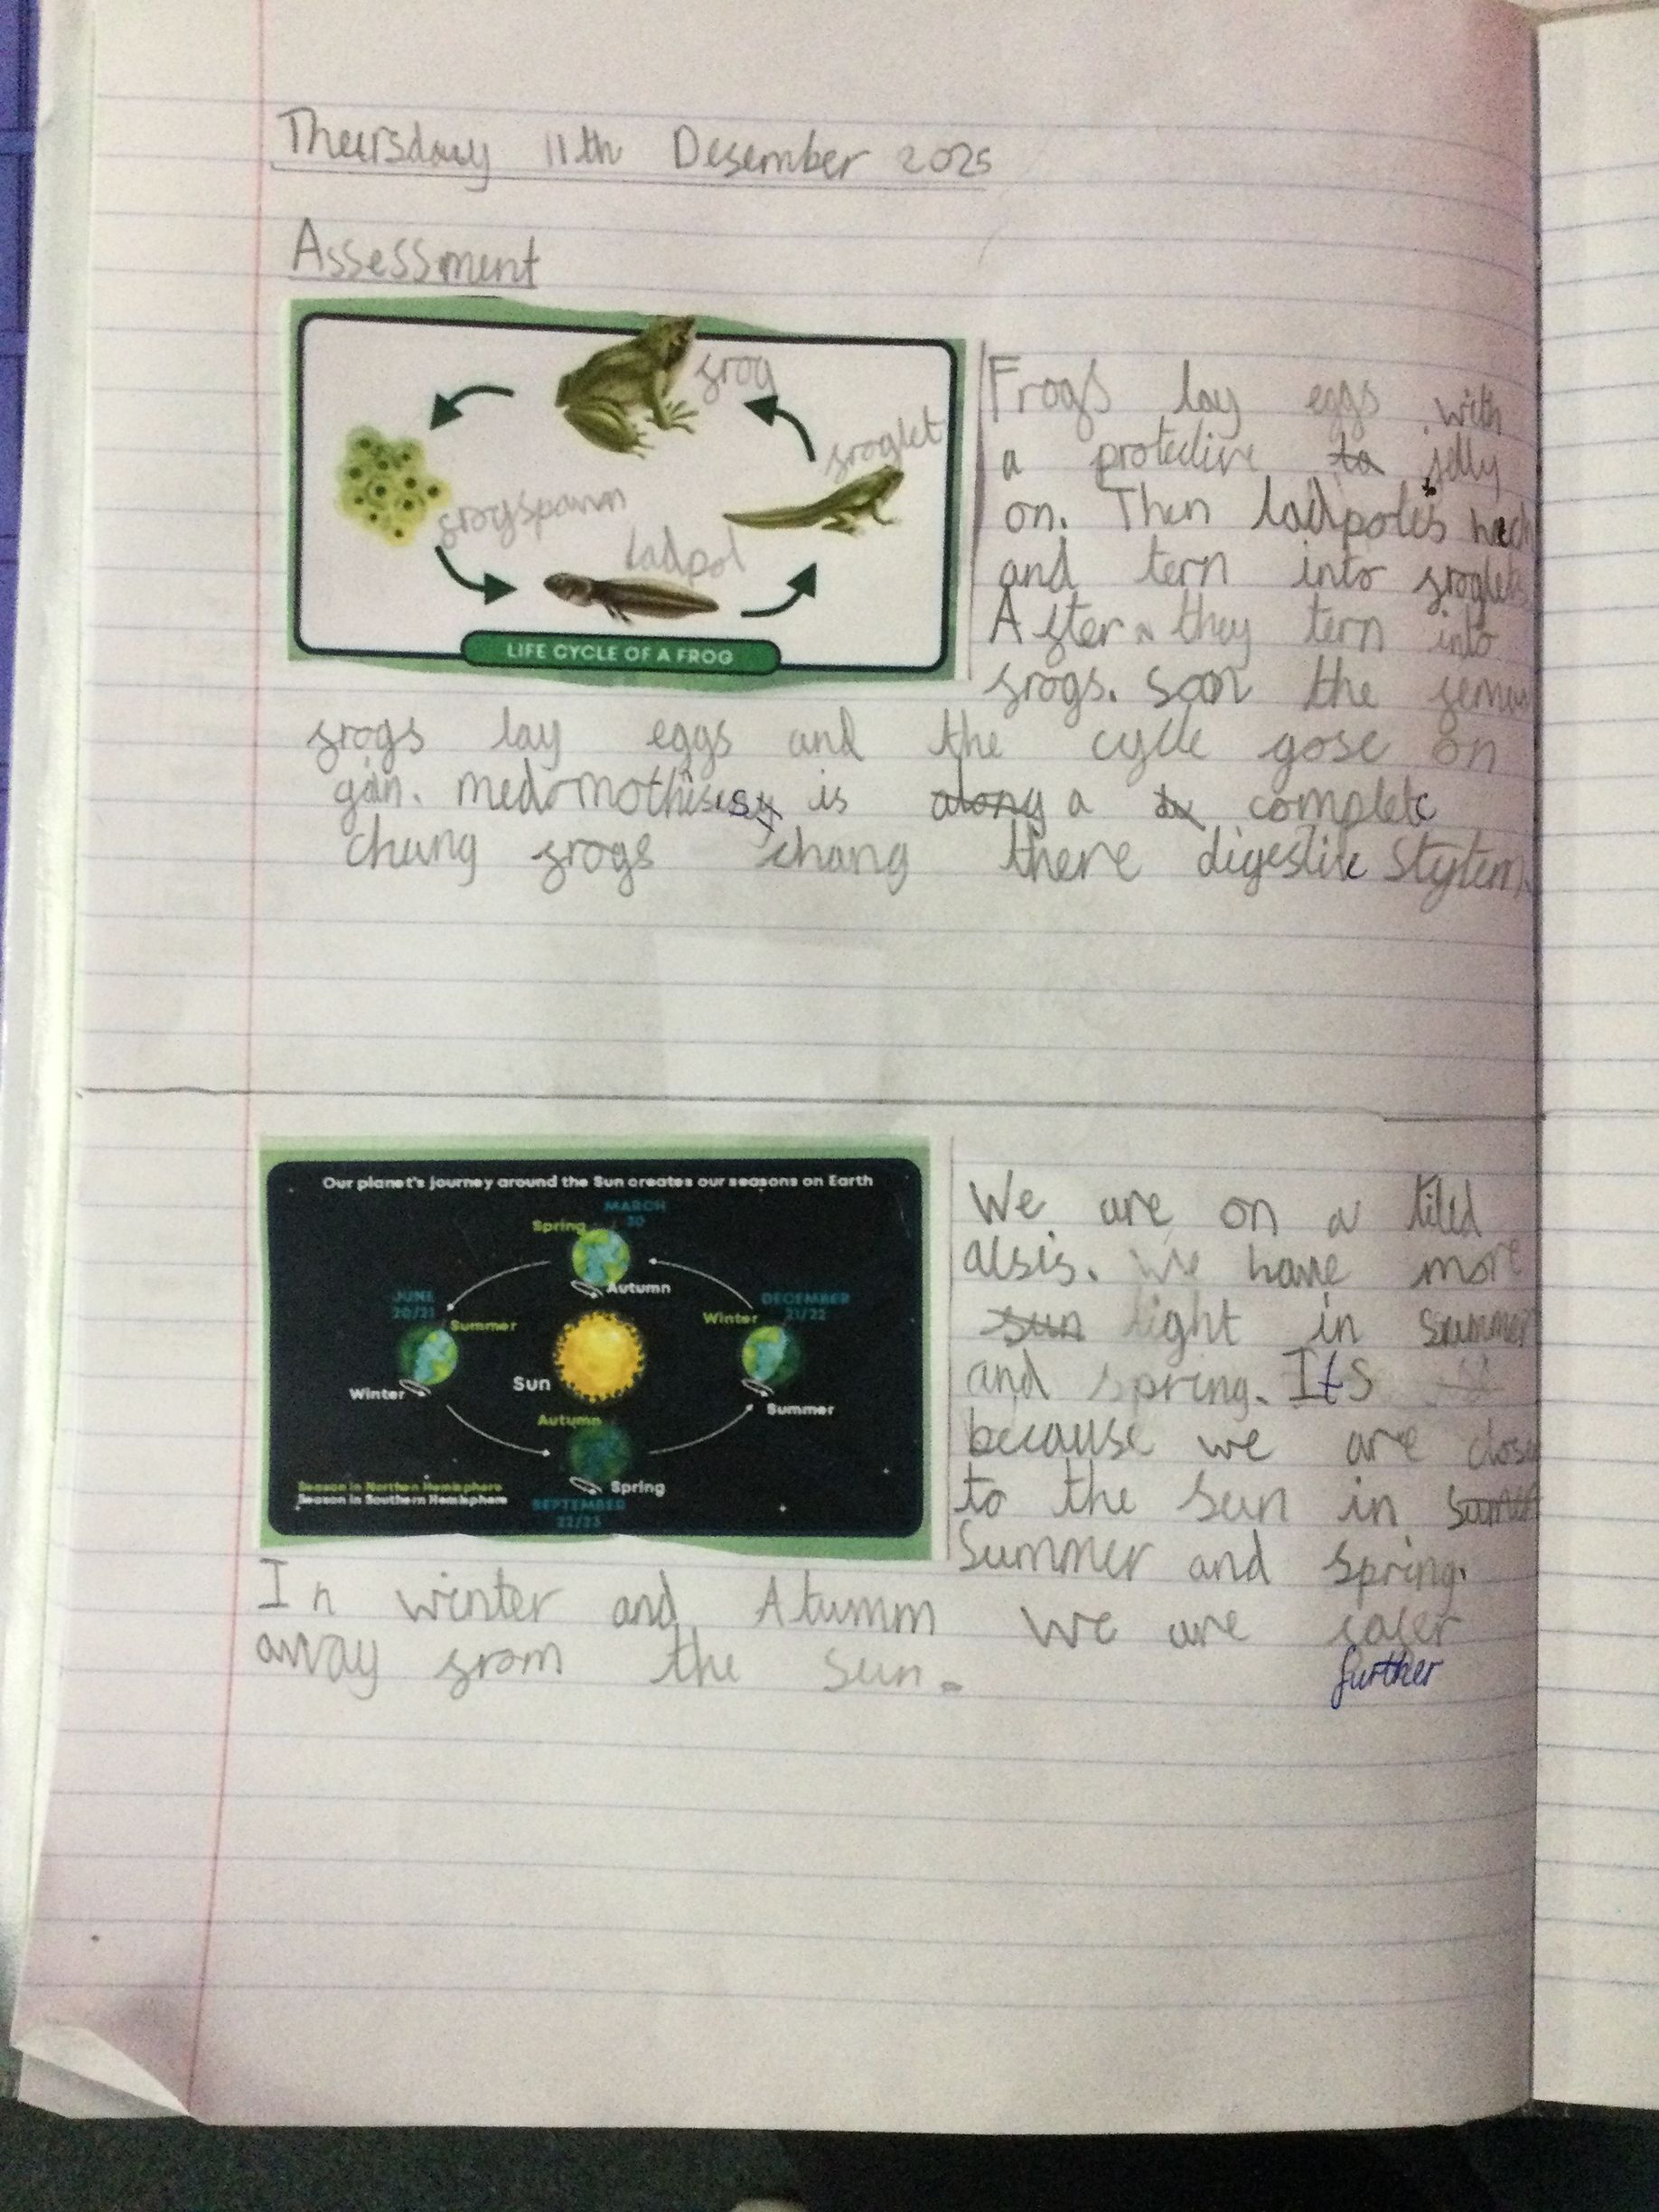 Thursday 11th Desember 2025
Assessment
frog
froglet
frogspawn
tadpol
LIFE CYCLE OF A FROG
Frogs lay eggs with
a protective to jelly
on. Then tadpoles hach
and tern into froglets
After they tern into
frogs. Soon the
frogs lay eggs and the cycle gose on
gain. is along a complete
chang frogs chang there digestive Stytem.
Our planet's journey around the Sun creates our seasons on Earth
MARCH
20
Spring
Autumn
JUNE
20/21
Summer
Winter
DECEMBER
21/22
Winter
Summer
Sun
Autumn
Spring
SEPTEMBER
22/23
Season in Northen Hemisphere
Season in Southern Hemisphere
We are on a tilted
alsis. We have more
sun light in summer
and spring. Its
because we are close
to the sun in
Summer and spring.
In winter and Atumm we are
further
away from the sun.